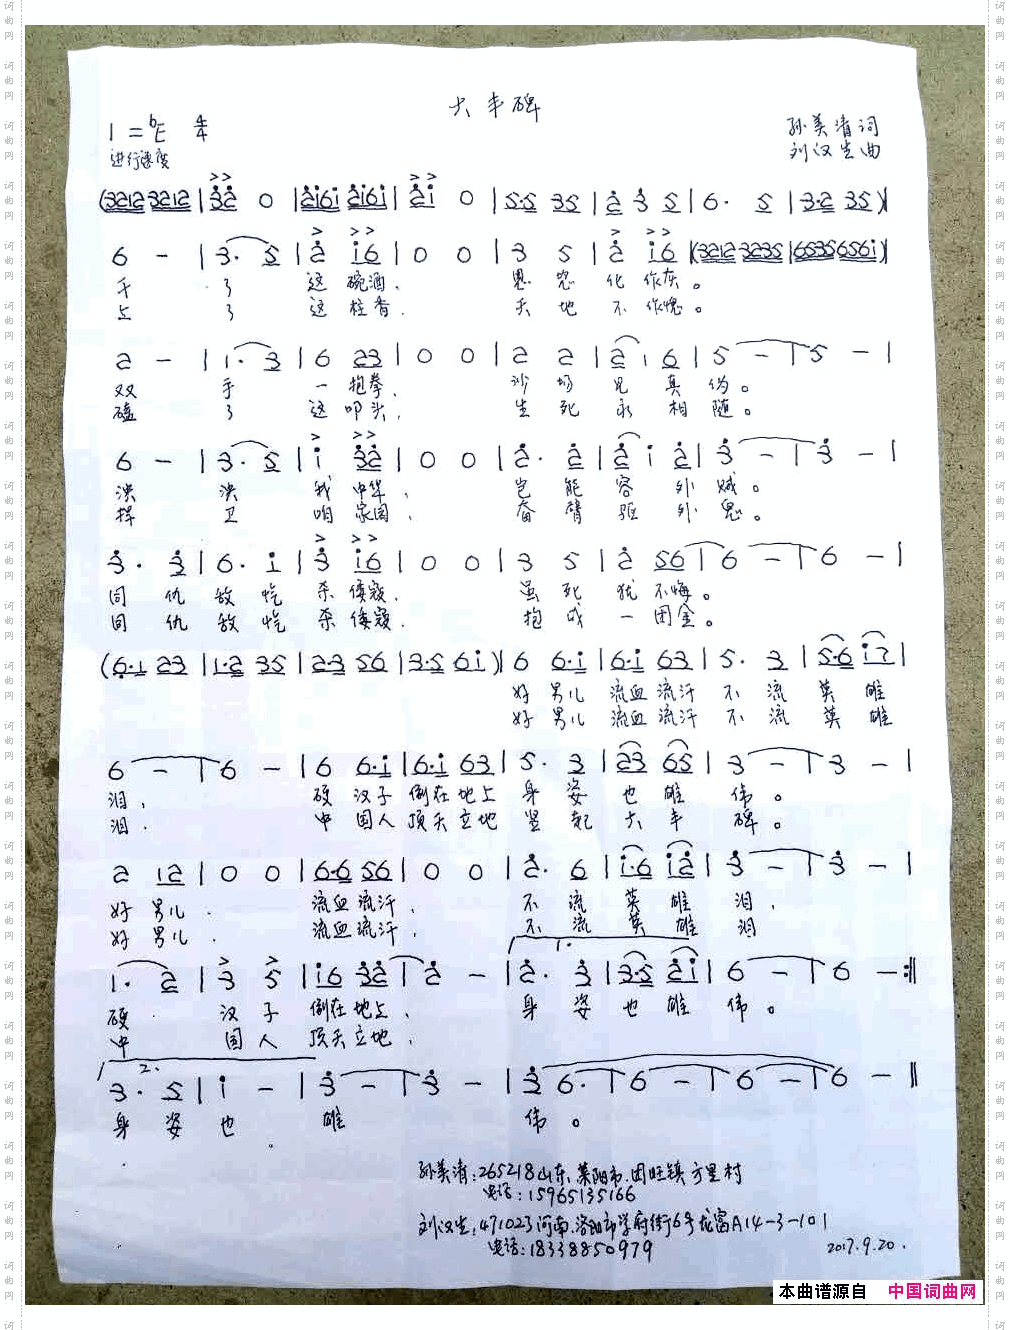 大丰碑
1=bE 4/4
孙美清词
进行速度
刘汉生曲
(3212 3212 | 32 0 | 2161 2161 | 21 0 | 5·5 35 | 2 3 5 | 6· 5 | 3·2 35)|
6 - | 3· 5 | 2 16 | 0 0 | 3 5 | 2 16 |(3212 3235 | 6535 6561)|
干 了 这 碗酒, 恩 怨 化 作灰。
上 了 这 柱香. 天 地 不 作愧。
2 - | 1· 3 | 6 23 | 0 0 | 2 2 | 2 1 6 | 5 - | 5 - |
双 手 一 抱拳, 沙 场 见 真 伪。
磕 了 这 叩头, 生 死 永 相 随。
6 - | 3· 5 | 1 32 | 0 0 | 2· 2 | 2 1 2 | 3 - | 3 - |
泱 泱 我 中华, 岂 能 容 外 贼。
捍 卫 咱 家园, 奋 臂 驱 外 鬼。
3· 3 | 6· 1 | 3 16 | 0 0 | 3 5 | 2 56 | 6 - | 6 - |
同 仇 敌 忾 杀 倭寇, 虽 死 犹 不悔。
同 仇 敌 忾 杀 倭寇. 抱 成 一 团金。
(6·1 23 | 1·2 35 | 23 56 | 3·5 61)| 6 6·1 | 6·1 63 | 5· 3 | 5·6 17 |
好 男儿 流血 流汗 不 流 英 雄
好 男儿 流血 流汗 不 流 英 雄
6 - | 6 - | 6 6·1 | 6·1 63 | 5· 3 | 23 65 | 3 - | 3 - |
泪, 硬 汉子 倒在 地上 身 姿 也 雄 伟。
泪. 中 国人 顶天 立地 竖 起 大 丰 碑。
2 12 | 0 0 | 6·6 56 | 0 0 | 2· 6 | 1·6 12 | 3 - | 3 - |
好 男儿. 流血 流汗, 不 流 英 雄 泪,
好 男儿. 流血 流汗, 不 流 英 雄 泪
1.
1· 2 | 3 5 | 16 32 | 2 - | 2· 3 | 3·5 21 | 6 - | 6 - :||
硬 汉 子 倒在 地上, 身 姿 也 雄 伟。
中 国 人 顶天 立地,
2.
3· 5 | 1 - | 3 - | 3 - | 3 6· | 6 - | 6 - | 6 - ||
身 姿 也 雄 伟。
孙美清:265218山东莱阳市团旺镇方里村
电话:15965135166
刘汉生:471023河南洛阳市学府街6号龙富A14-3-101
电话:18338850979
2017.9.20.
本曲谱源自 中国词曲网